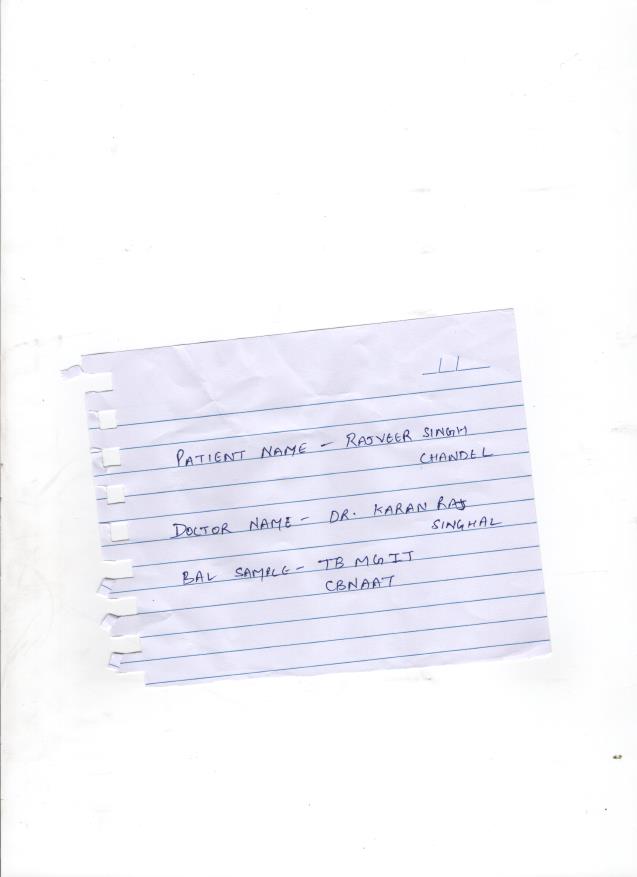 PATIENT NAME - RAJVEER SINGH
CHANDEL
DOCTOR NAME - DR. KARAN RAJ
SINGHAL
BAL SAMPLE - TB MGIT
CBNAAT